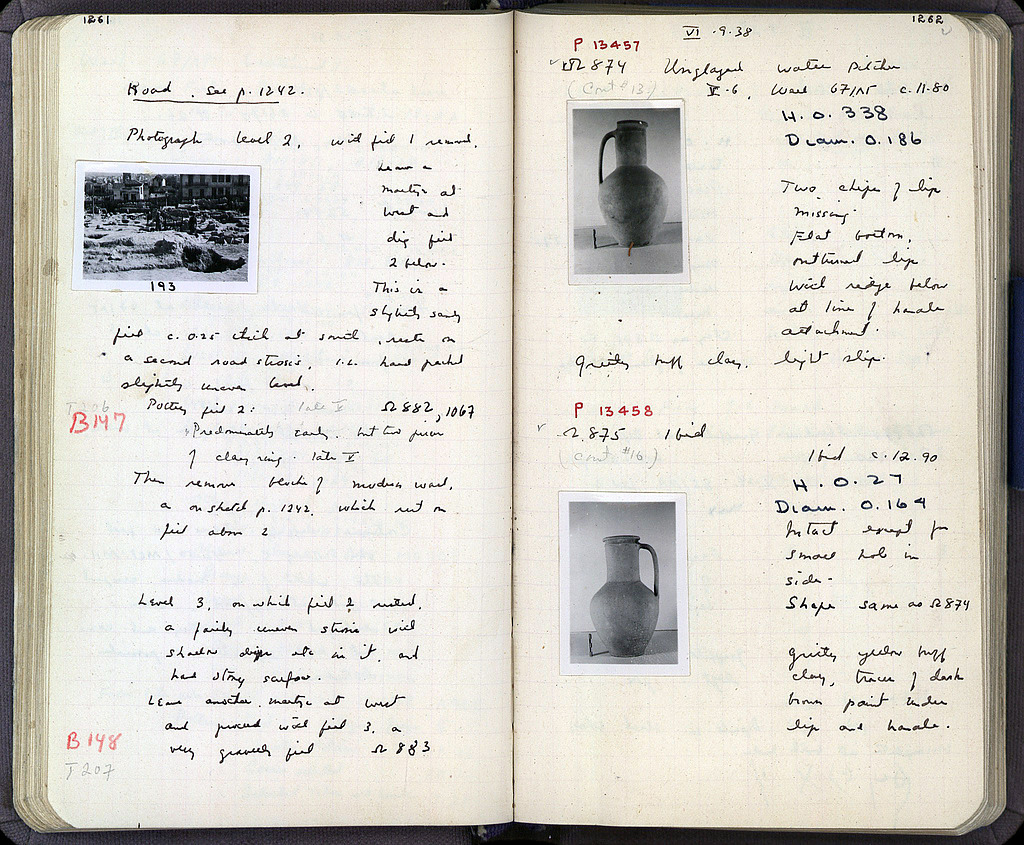 1261
Road. See p. 1242.
Photograph level 2, with fill 1 removed.
Leave a
martyr at
west and
dig fill
2 below.
This is a
slightly sandy
193
fill c. 0.25 thick at south, rests on
a second road strosis, i.e. hard packed
slightly uneven level.
T206
B147
Pottery fill 2: late V Ω 882, 1067
Predominately early. but two pieces
of clay ring. late V
Then remove blocks of modern wall,
a on sketch p. 1242. which rest on
fill above 2
Level 3, on which fill 2 rested,
a fairly uneven strosis with
shallow dips etc in it, and
hard stony surface.
Leave another martyr at west
and proceed with fill 3, a
very gravelly fill Ω 883
B 148
T 207
1262
VI ·9·38
P 13457
Ω 874 Unglazed water pitcher
(Cont #13)
V·6, Well 67/ΛΕ c. 11.80
H. 0.338
Diam. 0.186
Two chips of lip
missing.
Flat bottom,
outturned lip
with ridge below
at line of handle
attachment.
Gritty buff clay, light slip.
P 13458
Ω 875 Ibid
(Cont #16)
Ibid c. 12.90
H. 0.27
Diam. 0.164
Intact except for
small hole in
side.
Shape same as Ω 874
gritty yellow buff
clay, traces of dark
brown paint under
lip and handle.